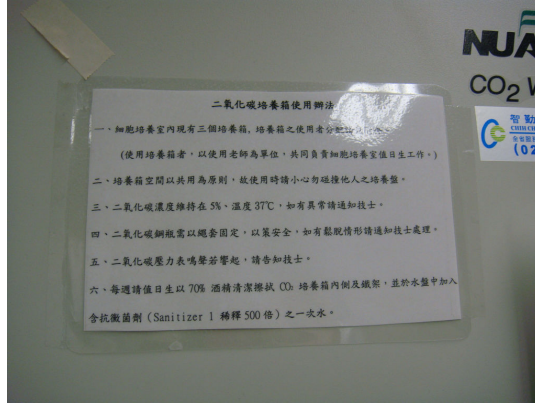 二氧化碳培養箱使用辦法
一、細胞培養室內現有三個培養箱,培養箱之使用者分配
(使用培養箱者,以使用老師為單位,共同負責細胞培養室值日生工作。)
二、培養箱空間以共用為原則,故使用時請小心勿碰撞他人之培養盤。
三、二氧化碳濃度維持在 5%、溫度 37℃,如有異常請通知技士。
四、二氧化碳鋼瓶需以繩套固定,以策安全,如有鬆脫情形請通知技士處理。
五、二氧化碳壓力表鳴聲若響起,請告知技士。
六、每週請值日生以 70% 酒精清潔擦拭 CO₂ 培養箱內側及鐵架,並於水盤中加入
含抗黴菌劑(Sanitizer 1 稀釋 500 倍)之一次水。
NUA
CO₂ W
智勤
CHIH CH
(02